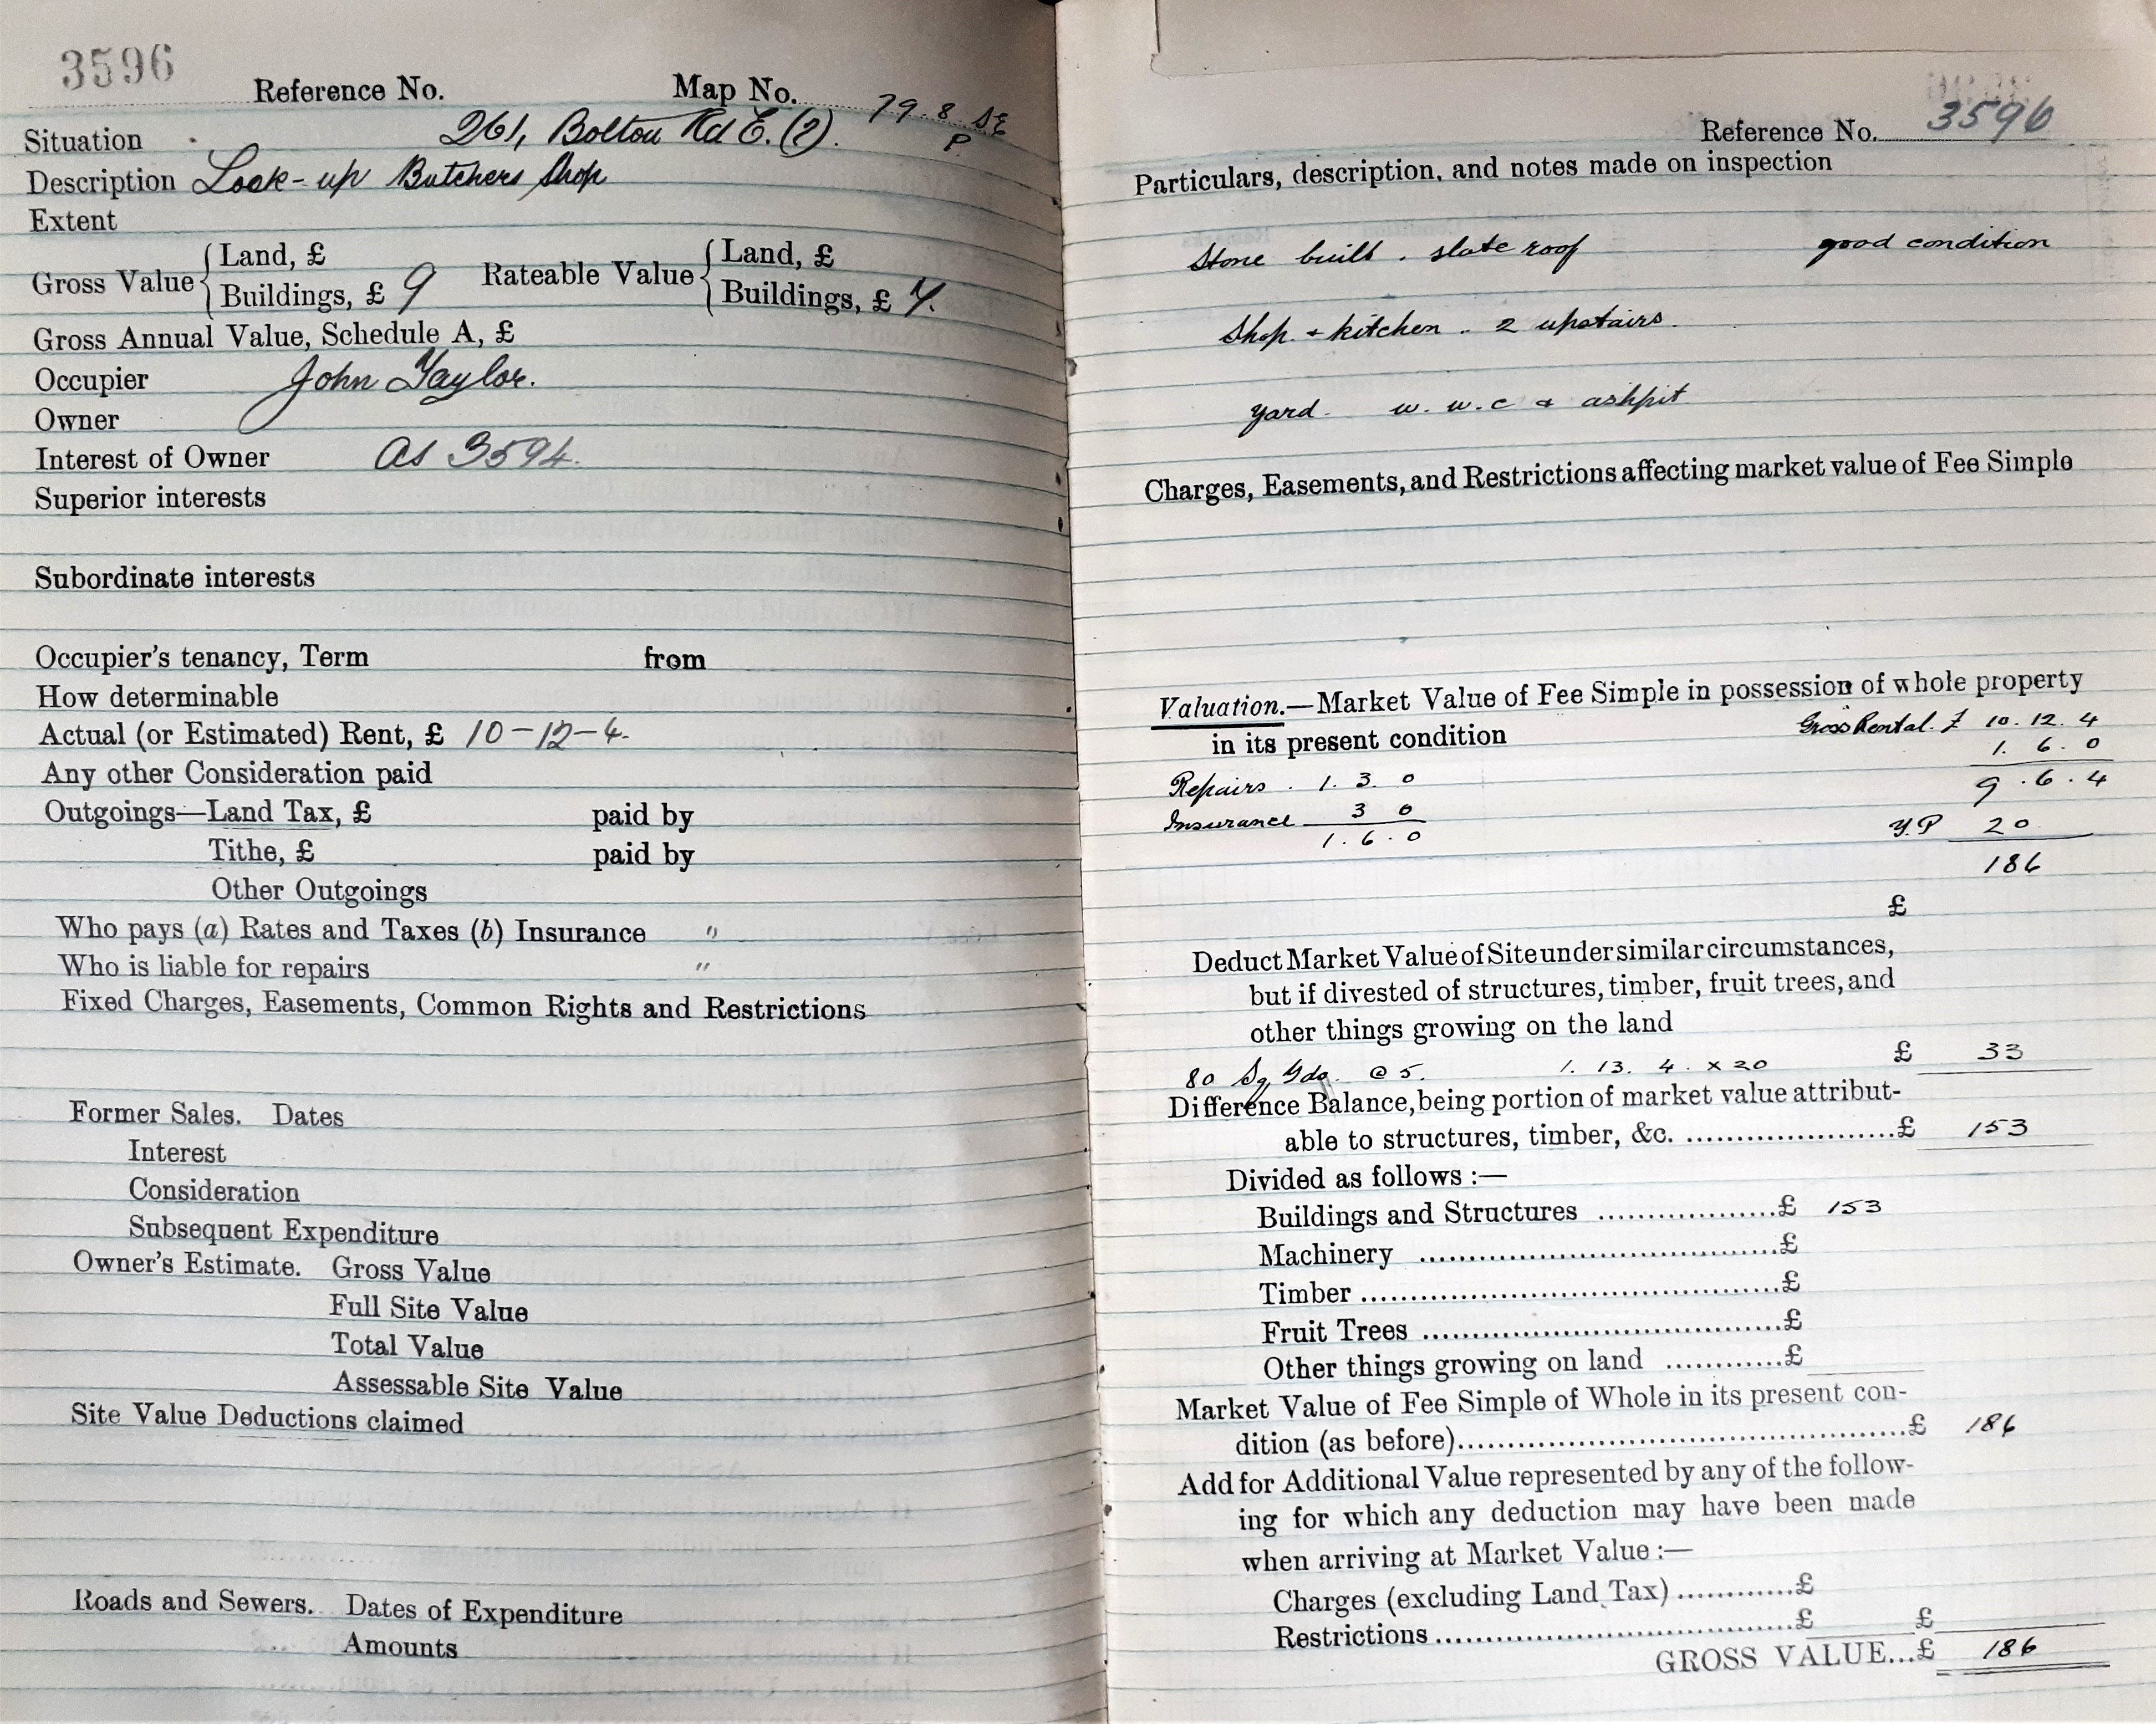 3596
Reference No. Map No. 79.8 SE
P
Situation 261, Bolton Rd E. (2).
Description Lock-up Butchers Shop
Extent
Gross Value { Land, £
Buildings, £ 9
Rateable Value { Land, £
Buildings, £ 7.
Gross Annual Value, Schedule A, £
Occupier John Taylor.
Owner
Interest of Owner As 3594.
Superior interests
Subordinate interests
Occupier's tenancy, Term from
How determinable
Actual (or Estimated) Rent, £ 10-12-4.
Any other Consideration paid
Outgoings—Land Tax, £ paid by
Tithe, £ paid by
Other Outgoings
Who pays (a) Rates and Taxes (b) Insurance "
Who is liable for repairs "
Fixed Charges, Easements, Common Rights and Restrictions
Former Sales. Dates
Interest
Consideration
Subsequent Expenditure
Owner's Estimate. Gross Value
Full Site Value
Total Value
Assessable Site Value
Site Value Deductions claimed
Roads and Sewers. Dates of Expenditure
Amounts
Reference No. 3596
Particulars, description, and notes made on inspection
Stone built . slate roof good condition
Shop + kitchen . 2 upstairs.
yard. w. w.c & ashpit
Charges, Easements, and Restrictions affecting market value of Fee Simple
Valuation.—Market Value of Fee Simple in possession of whole property
in its present condition Gross Rental. £ 10. 12. 4
1. 6. 0
Repairs . 1. 3. 0 9. 6. 4
Insurance 3 0 Y.P 20
1. 6. 0
186
£
Deduct Market Value of Site under similar circumstances,
but if divested of structures, timber, fruit trees, and
other things growing on the land
80 Sq Yds @ 5. 1. 13. 4. x 20 £ 33
Difference Balance, being portion of market value attribut-
able to structures, timber, &c. .....................£ 153
Divided as follows :—
Buildings and Structures ..................£ 153
Machinery ....................................£
Timber ..........................................£
Fruit Trees ....................................£
Other things growing on land ............£
Market Value of Fee Simple of Whole in its present con-
dition (as before).............................................£ 186
Add for Additional Value represented by any of the follow-
ing for which any deduction may have been made
when arriving at Market Value :—
Charges (excluding Land Tax) ............£
Restrictions ......................................£ £
GROSS VALUE...£ 186